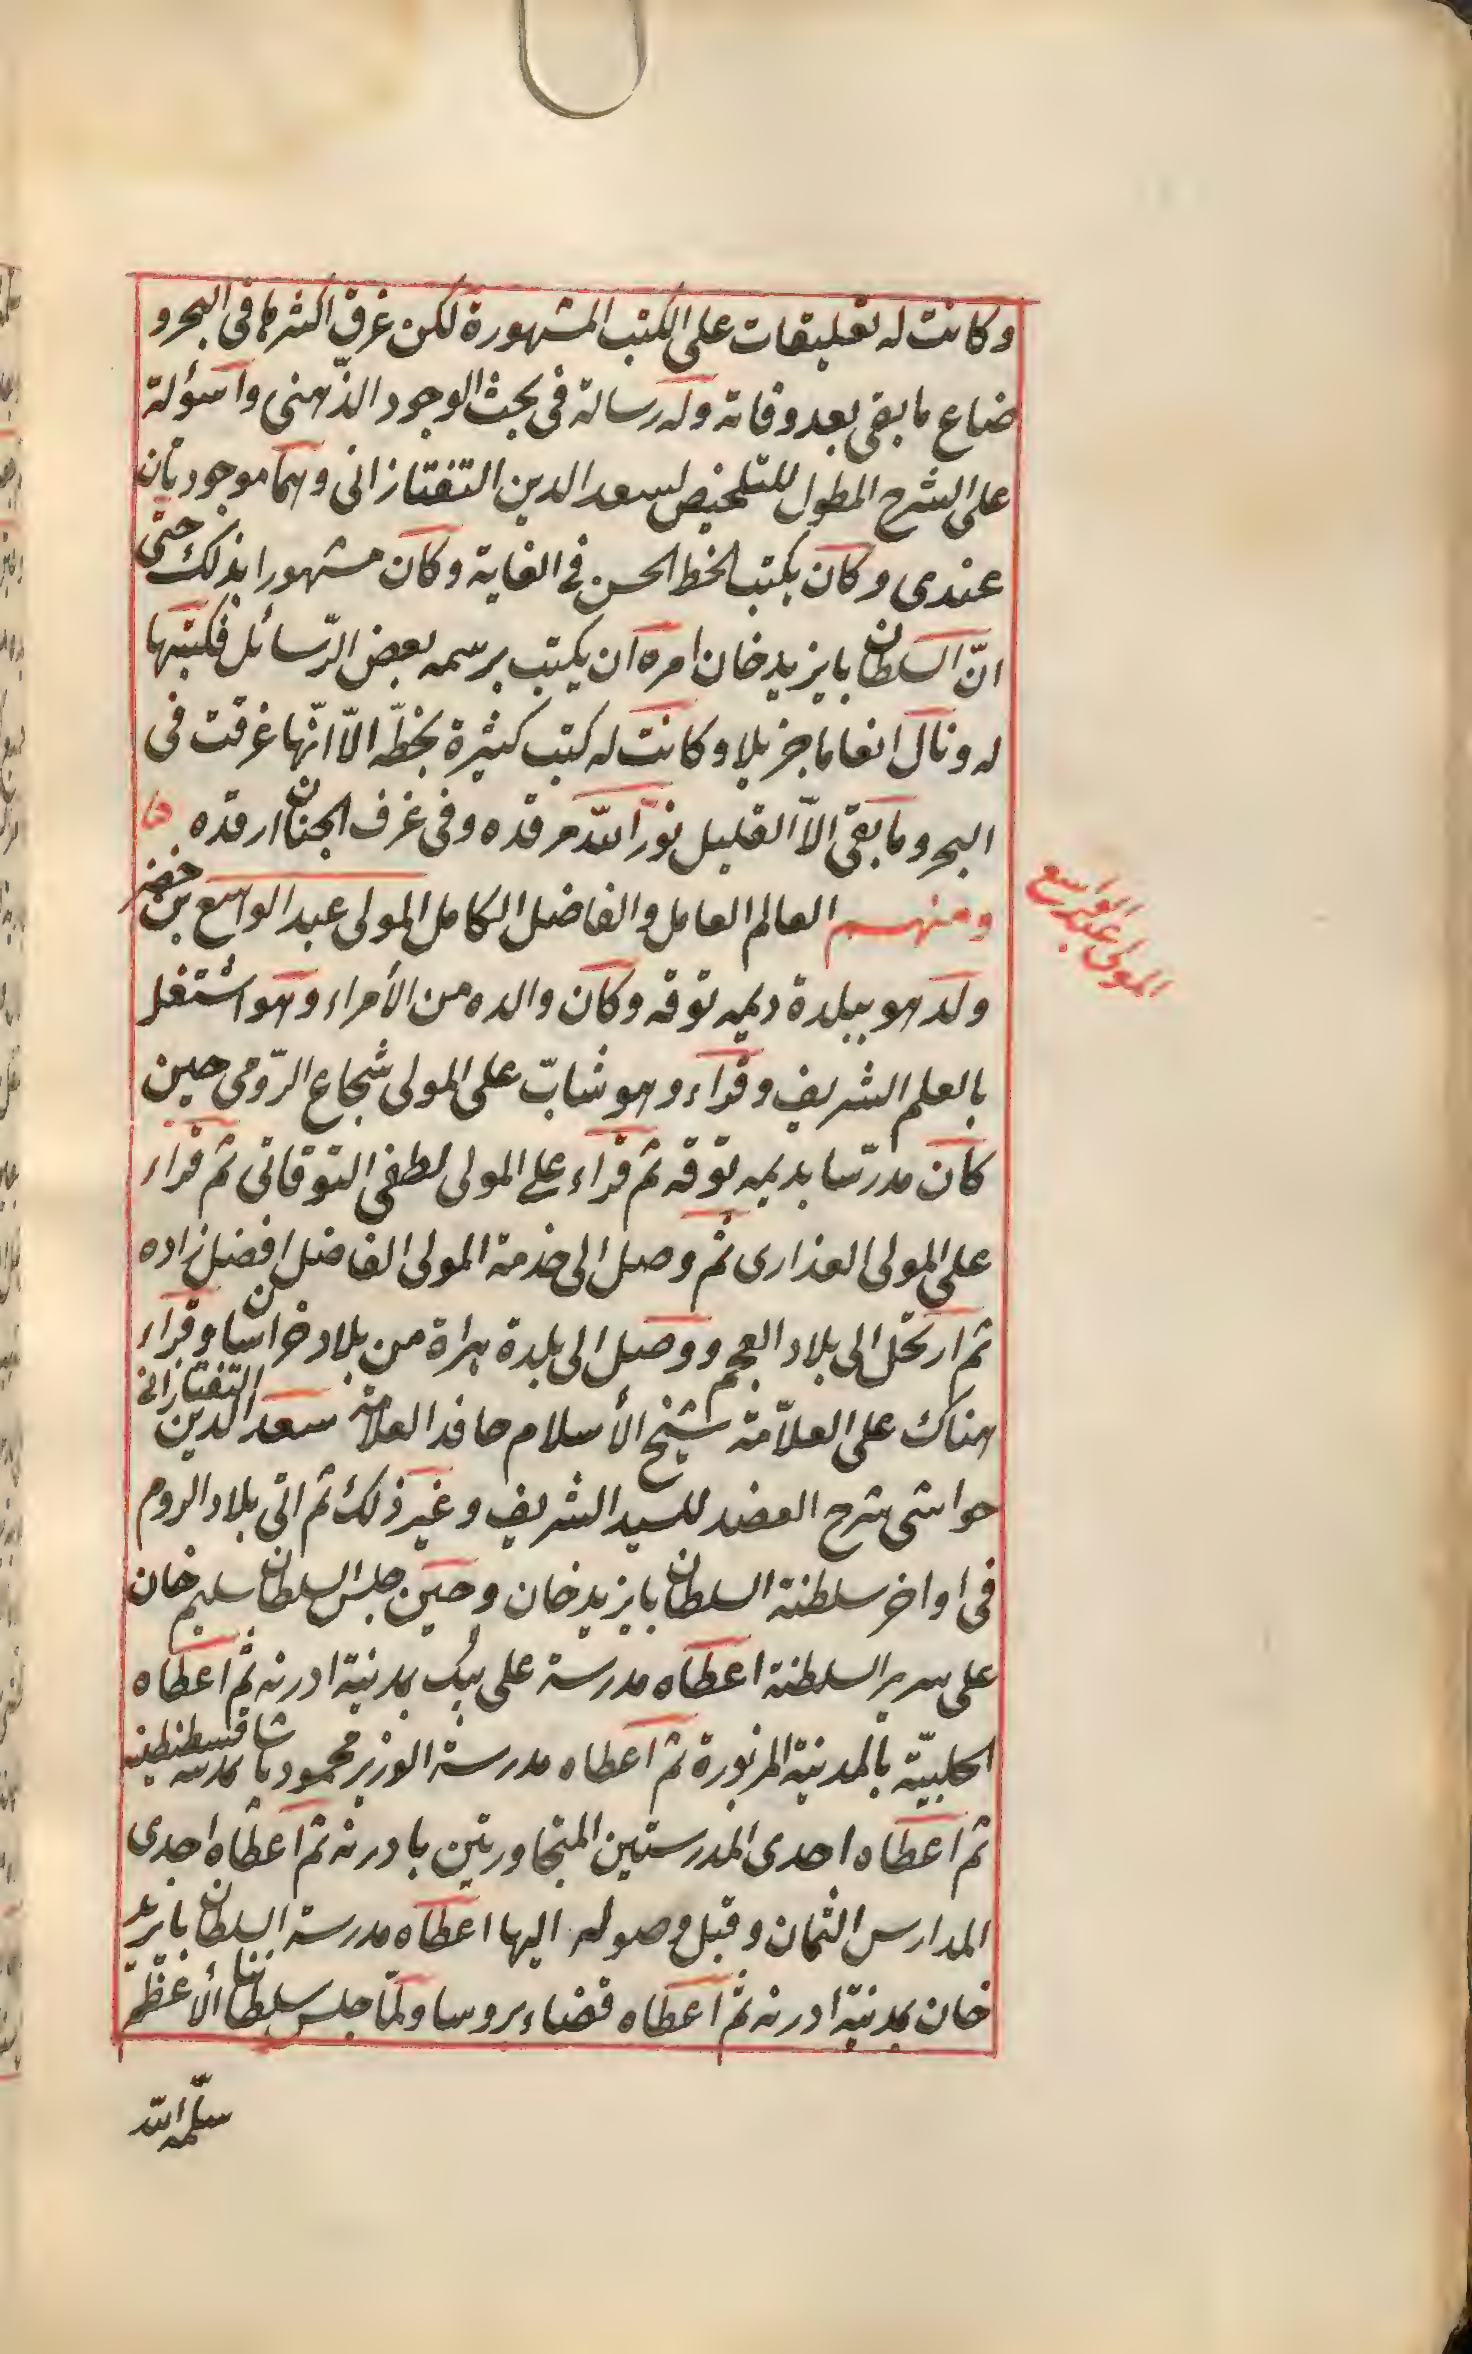 وكانت له تعليقات على الكتب المشهورة لكن غرق اكثرها فى البحر و
ضاع ما بقى بعد وفاته وله رسالة فى بحث الوجود الذّهنى واسؤلة
على الشرح المطول للتلخيص لسعد الدين التفتازانى وهما موجودتان
عندى وكان يكتب الخط الحسن فى الغاية وكان مشهورا بذلك حتّى
انّ السلطان بايزيد خان امره ان يكتب برسمه بعض الرّسائل فكتبها
له ونال انعاما جزيلا وكانت له كتب كثيرة بخطّه الّا انّها غرقت فى
البحر وما بقى الّا القليل نوّر الله مرقده وفى غرف الجنان ارقده
ومنهم العالم العامل والفاضل الكامل المولى عبد الواسع بن خضر
المولى عبد الواسع
ولد هو ببلدة ديمه توقه وكان والده من الأمراء وهو اشتغل
بالعلم الشريف وقراء وهو شابّ على المولى شجاع الرّومى حين
كان مدرّسا بديمه توقه ثم قراء على المولى لطفى التوقاتى ثم قراء
على المولى العذارى ثم وصل الى خدمة المولى الفاضل افضل زاده
ثم ارتحل الى بلاد العجم ووصل الى بلدة هراة من بلاد خراسان وقراء
هناك على العلاّمة شيخ الأسلام حافد العلامة سعد الدين التفتازانى
حواشى شرح العضد للسيد الشريف وغير ذلك ثم اتى بلاد الروم
فى اواخر سلطنة السلطان بايزيد خان وحين جلس السلطان سليم خان
على سرير السلطنة اعطاه مدرسة على بيك بمدينة ادرنه ثم اعطاه
الحلبيّة بالمدينة المزبورة ثم اعطاه مدرسة الوزير محمود باشا بمدينة قسطنطينيه
ثم اعطاه احدى المدرستين المتجاورتين بادرنه ثم اعطاه احدى
المدارس الثمان وقبل وصوله اليها اعطاه مدرسة السلطان بايزيد
خان بمدينة ادرنه ثم اعطاه قضاء بروسا ولمّا جلس سلطاننا الأعظم
سلّمه الله